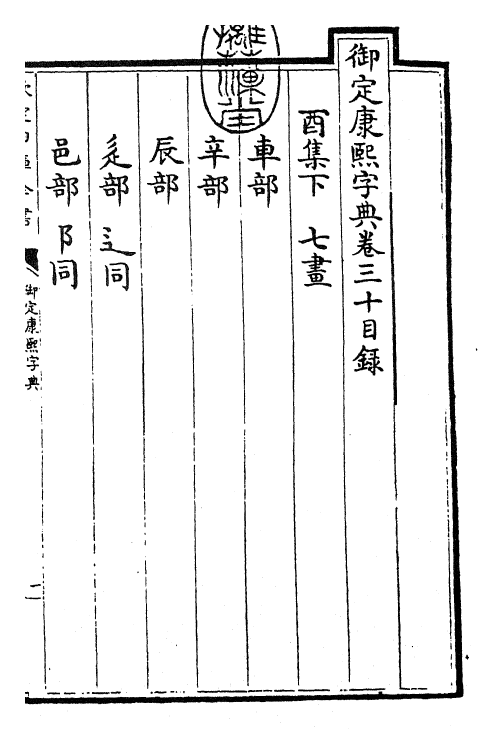 御定康熙字典卷三十目録
酉集下 七畫
車部
辛部
辰部
辵部 辶同
邑部 阝同
御定康熙字典